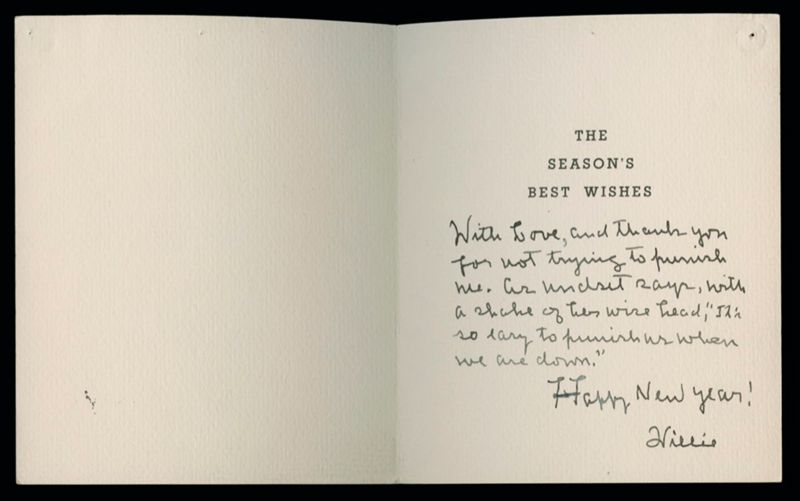 THE
SEASON'S
BEST WISHES
With Love, and thank you
for not trying to punish
me. As Undset says, with
a shake of her wise head, "It's
so easy to punish us when
we are down."
Happy New Year!
Willie